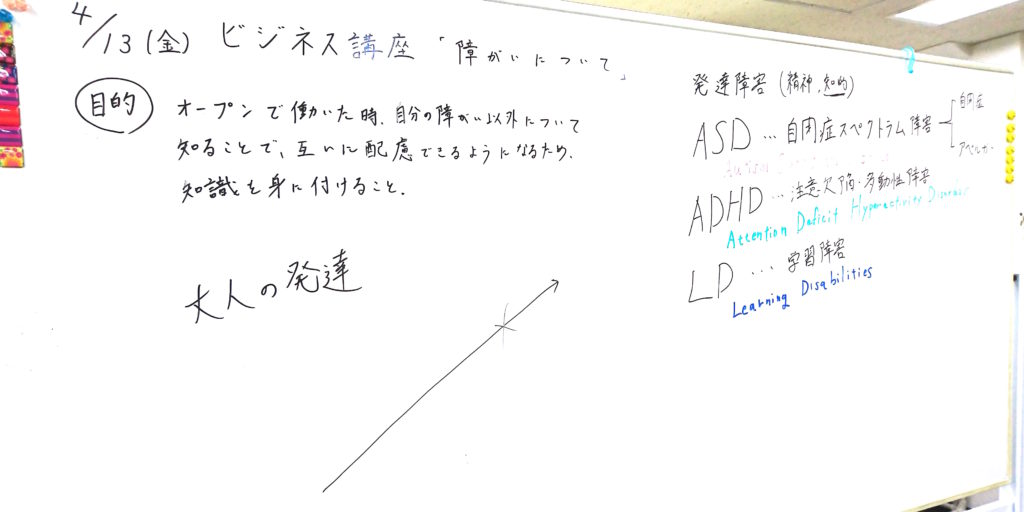 4/13(金) ビジネス講座「障がいについて」
目的
オープンで働いた時、自分の障がい以外について
知ることで、互いに配慮できるようになるため、
知識を身に付けること。
大人の発達
発達障害(精神、知的)
ASD … 自閉症スペクトラム障害
自閉症
アスペルガー
Autism
ADHD … 注意欠陥・多動性障害
Attention Deficit Hyperactivity Disorder
LD … 学習障害
Learning Disabilities